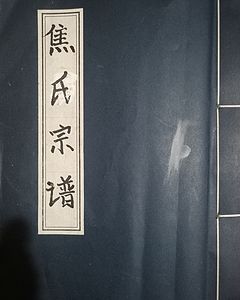 焦氏宗谱